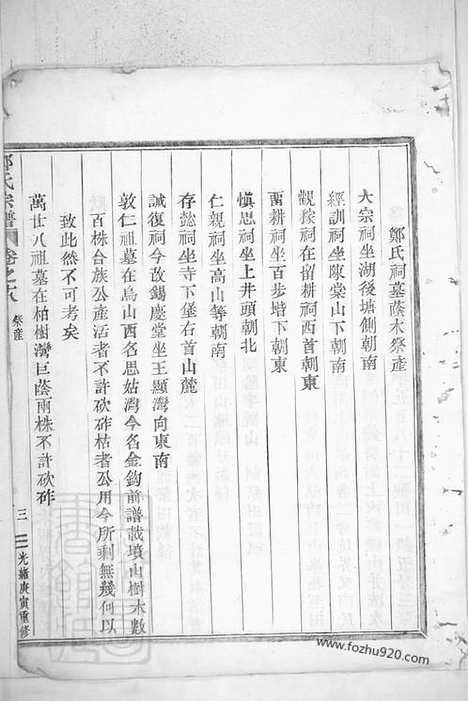 鄭氏祠墓蔭木祭產
大宗祠坐湖後塘側朝南
經訓祠坐陳棠山下朝南
觀稼祠在留耕祠西首朝東
畱耕祠坐百步堦下朝東
愼思祠坐上井頭朝北
仁親祠坐高山等朝南
存懿祠坐寺下堡右首山麓
誠復祠今改錫慶堂坐王顯灣向東南
敦仁祖墓在烏山西名思姑灣今名金鈎前譜載墳山樹木數
百株合族公產活者不許砍斫枯者公用今所剩無幾何以
致此然不可考矣
萬世八祖墓在柏樹灣巨蔭兩株不許砍斫
氏宗譜 卷之 祭產 三 光緒庚寅重修
www.fozhu920.com